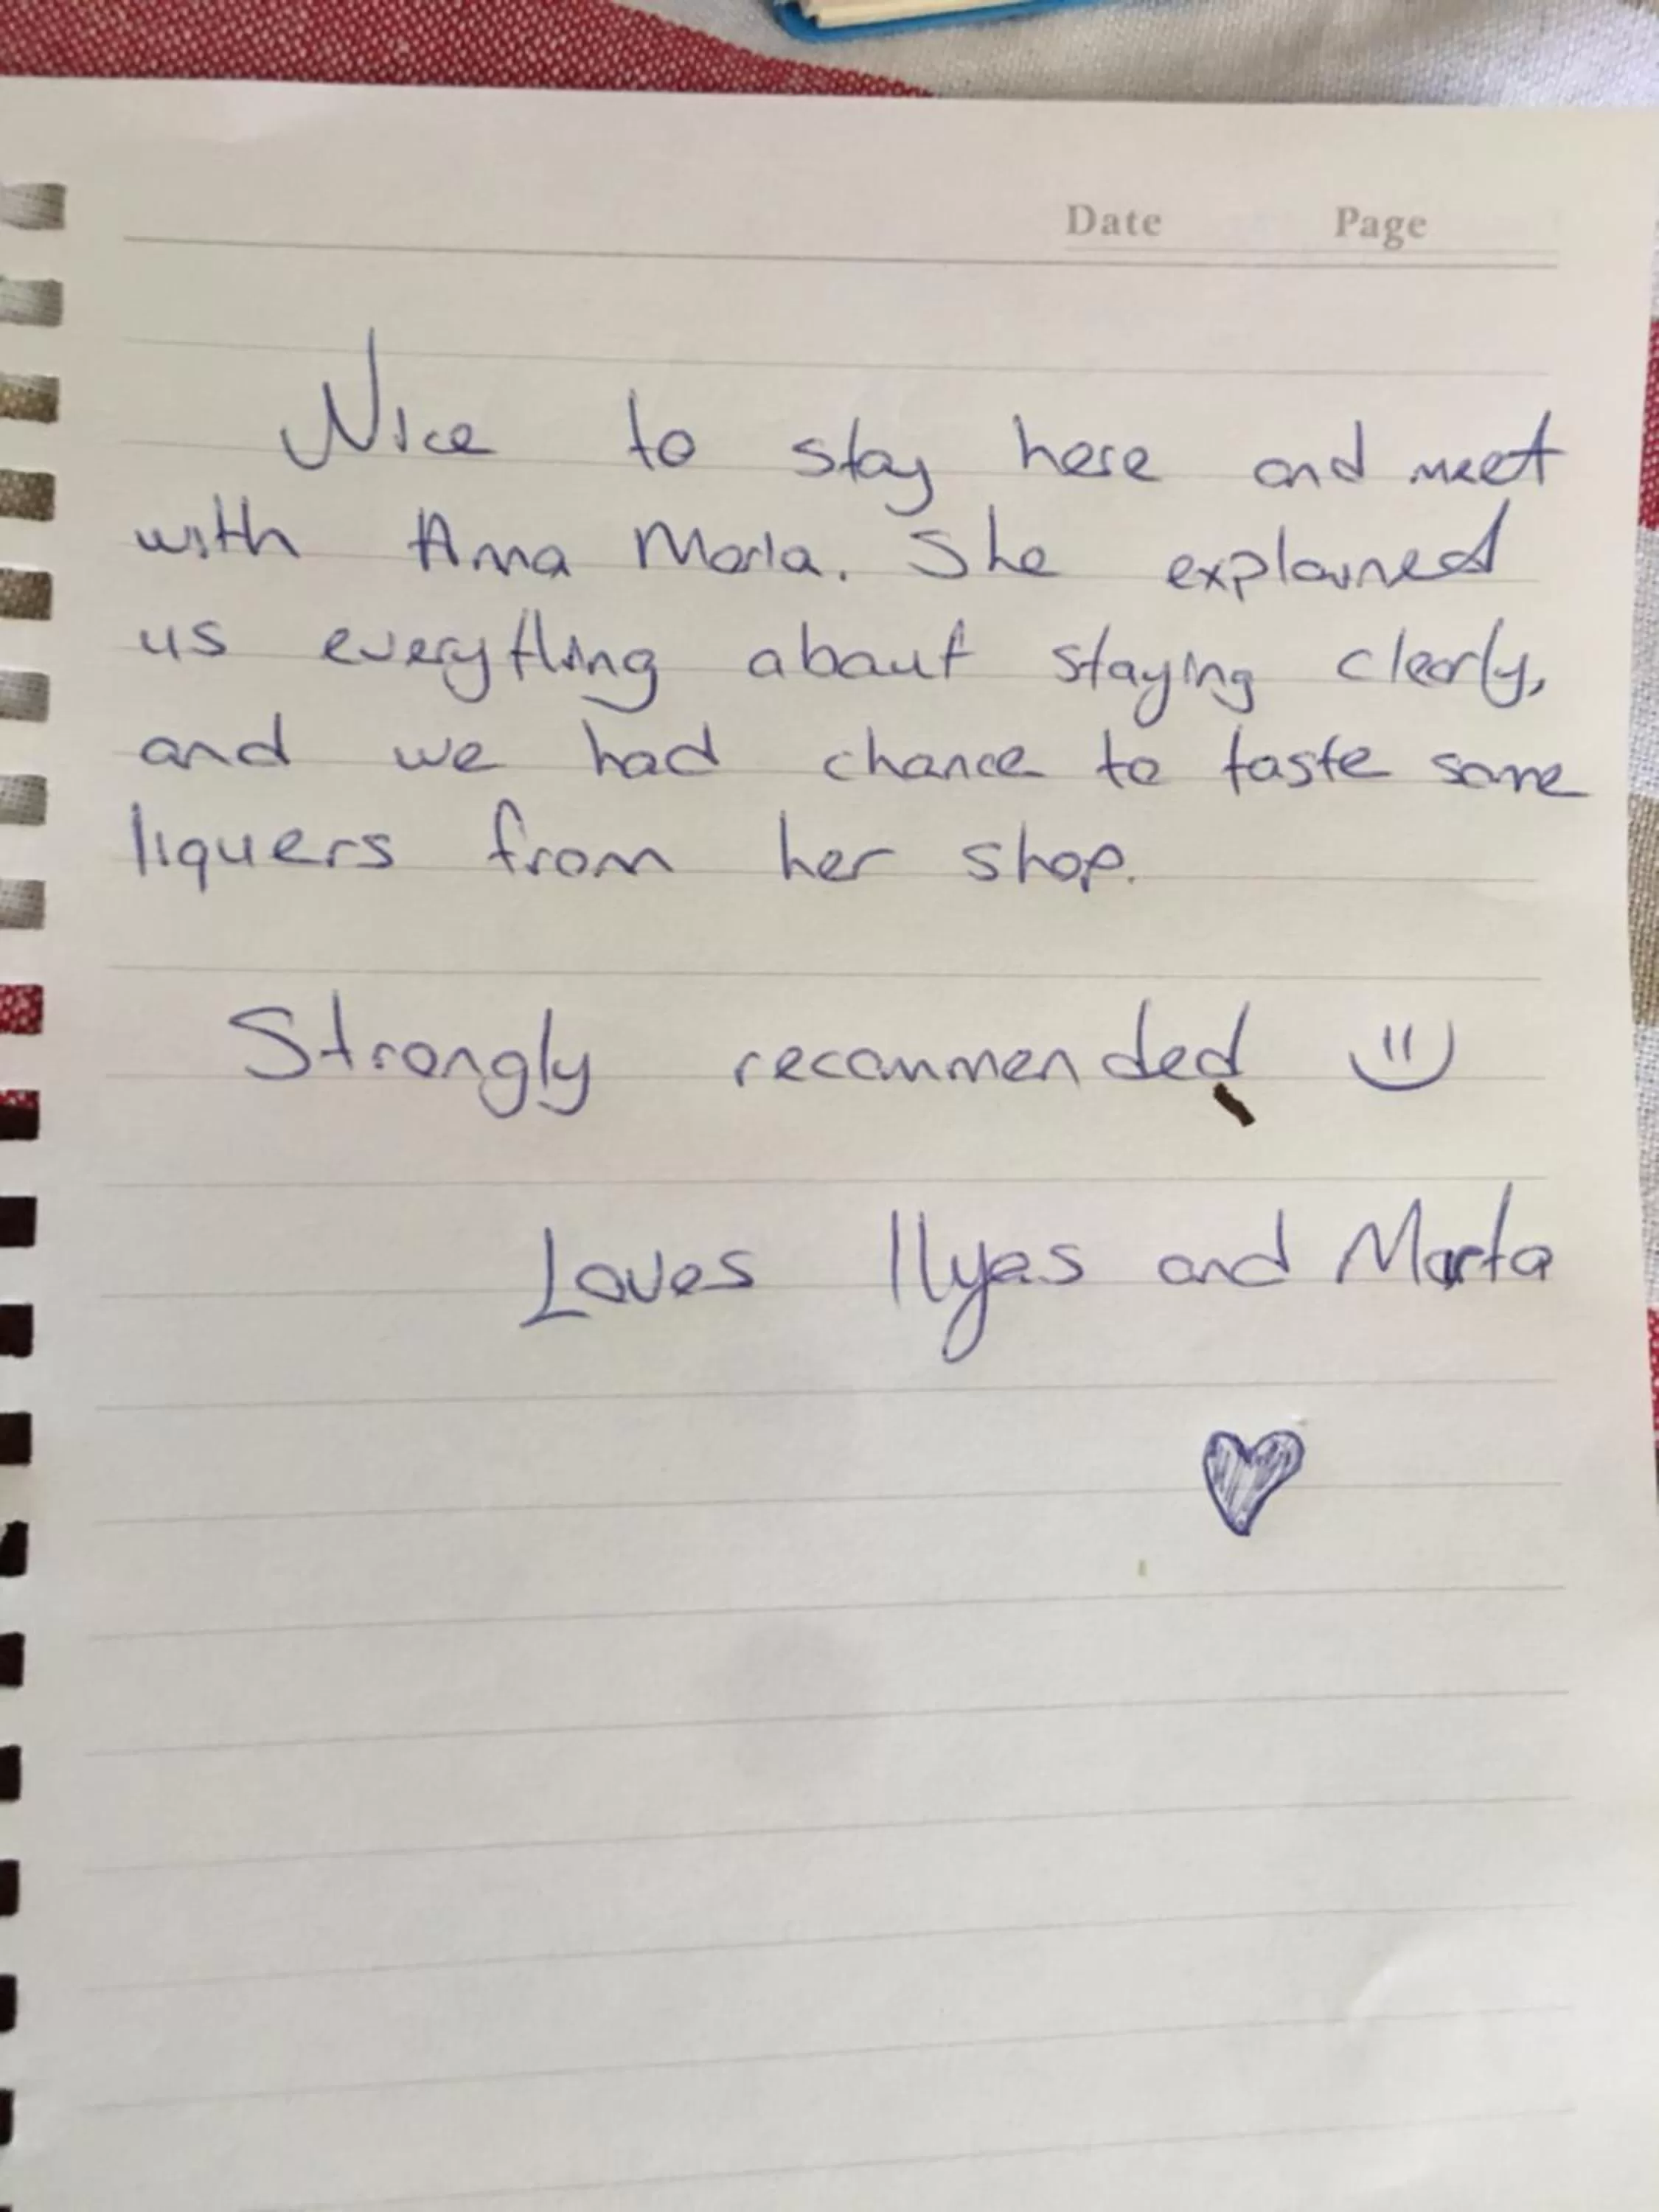 Date Page
Nice to stay here and meet
with Anna Maria. She explained
us everything about staying clearly,
and we had chance to taste some
liquers from her shop.
Strongly recommended =)
Loves Ilyas and Marta